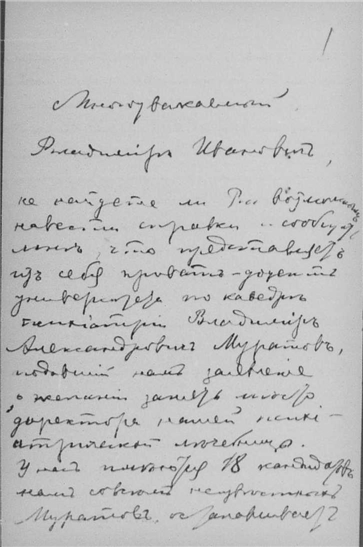 1
Многоуважаемый
Владиміръ Ивановичъ,
не найдете ли Вы возможнымъ
навести справки и сообщить
мнѣ, что представляетъ
изъ себя приватъ-доцентъ
университета по каѳедрѣ
психіатріи Владиміръ
Александровичъ Муратовъ,
подавшій намъ заявленіе
о желаніи занять мѣсто
директора нашей психі-
атрической лечебницы.
У насъ имѣются 18 кандидатовъ
намъ совсѣмъ неизвѣстныхъ
Муратовъ,